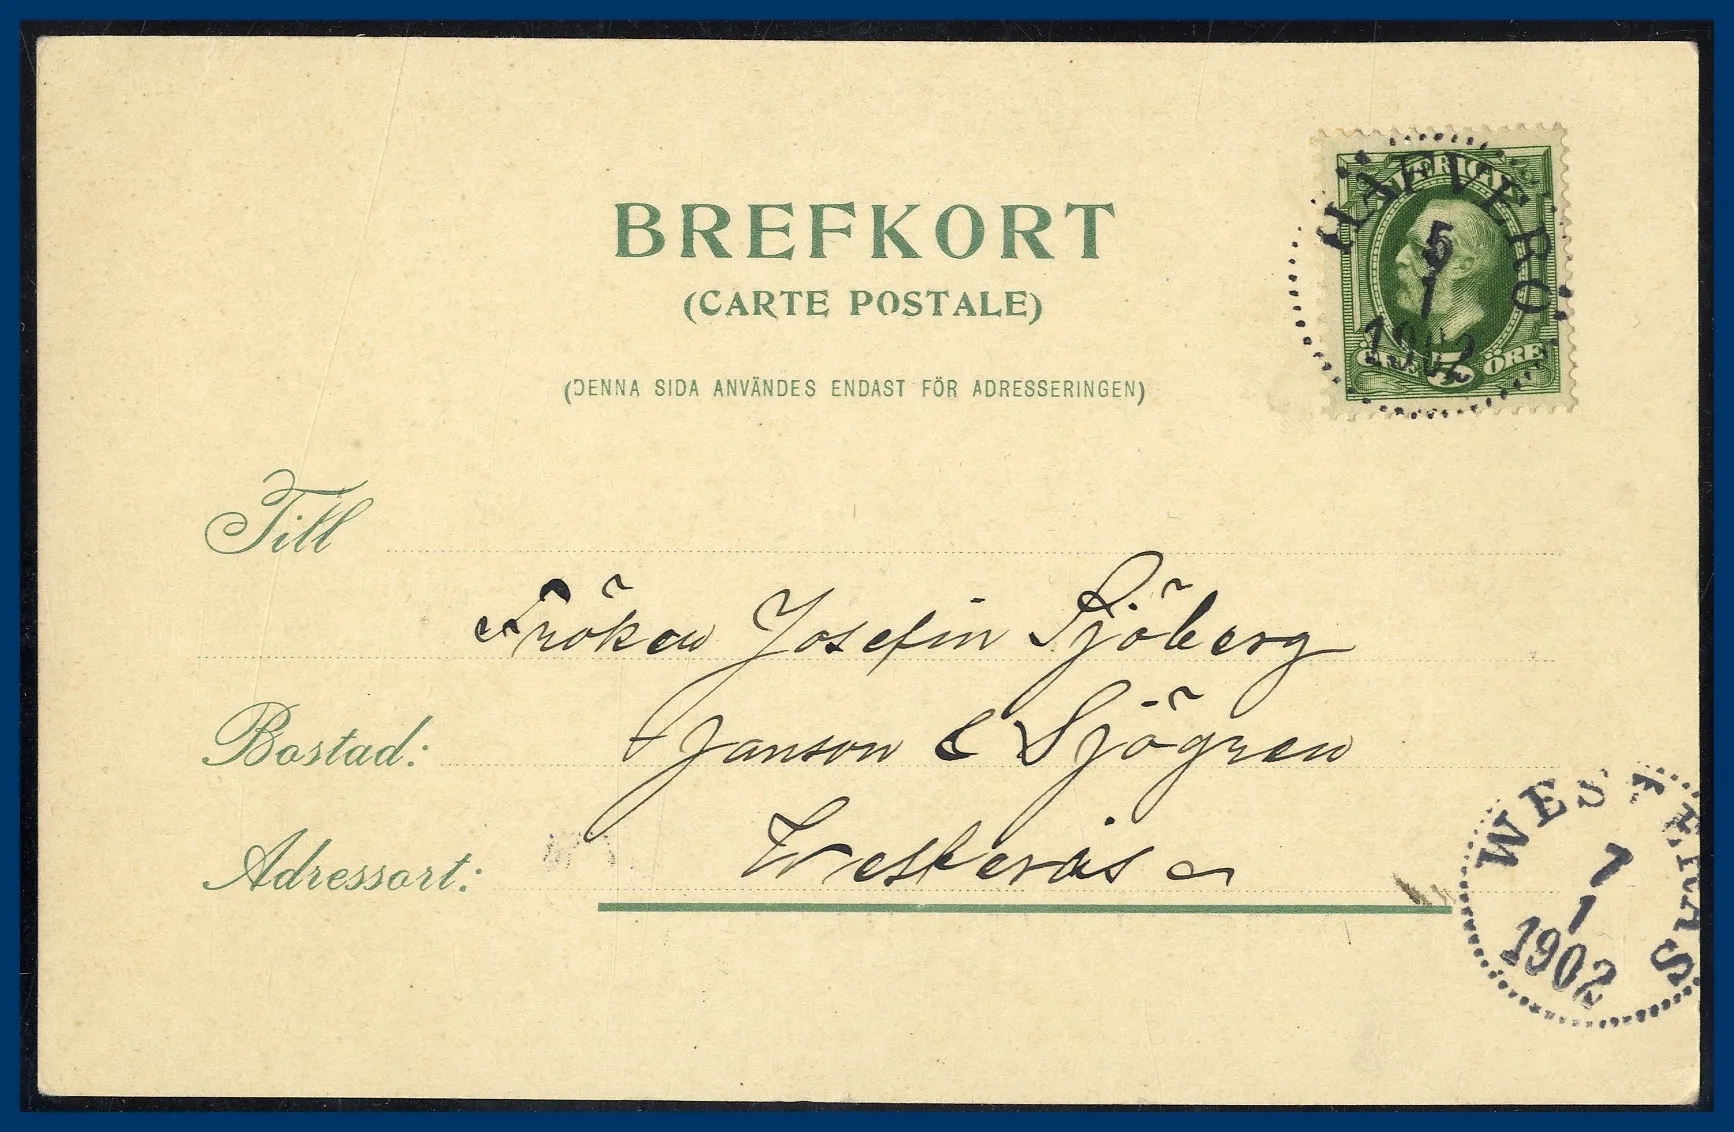 BREFKORT
(CARTE POSTALE)
(DENNA SIDA ANVÄNDES ENDAST FÖR ADRESSERINGEN)
HAFVERÖ
5
1
1902
ÖRE
Till
Fröken Josefin Sjöberg
Bostad: Janson & Sjögren
Adressort: Westerås
WESTERÅS
7
1
1902